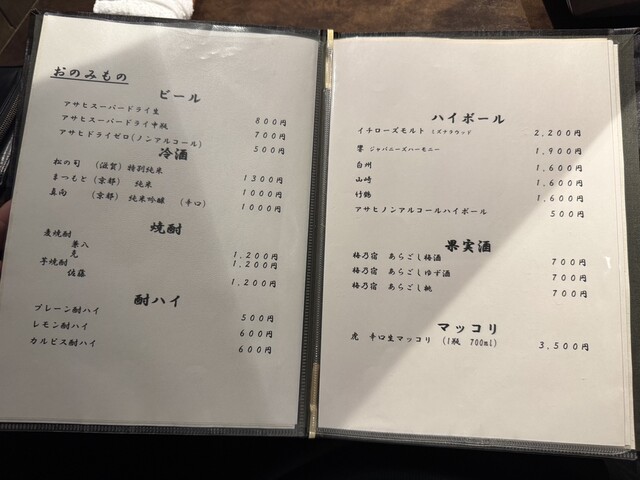 おのみもの
ビール
アサヒスーパードライ生 800円
アサヒスーパードライ中瓶 700円
アサヒドライゼロ(ノンアルコール) 500円
冷酒
松の司 (滋賀)特別純米 1300円
まつもと(京都) 純米 1000円
真向 (京都) 純米吟醸 (辛口) 1000円
焼酎
麦焼酎
兼八 1,200円
芋焼酎 1,200円
佐藤 1,200円
酎ハイ
プレーン酎ハイ 500円
レモン酎ハイ 600円
カルピス酎ハイ 600円
ハイボール
イチローズモルト ミズナラウッド 2,200円
響 ジャパニーズハーモニー 1,900円
白州 1,600円
山崎 1,600円
竹鶴 1,600円
アサヒノンアルコールハイボール 500円
果実酒
梅乃宿 あらごし梅酒 700円
梅乃宿 あらごしゆず酒 700円
梅乃宿 あらごし桃 700円
マッコリ
虎 辛口生マッコリ (1瓶 700ml) 3,500円